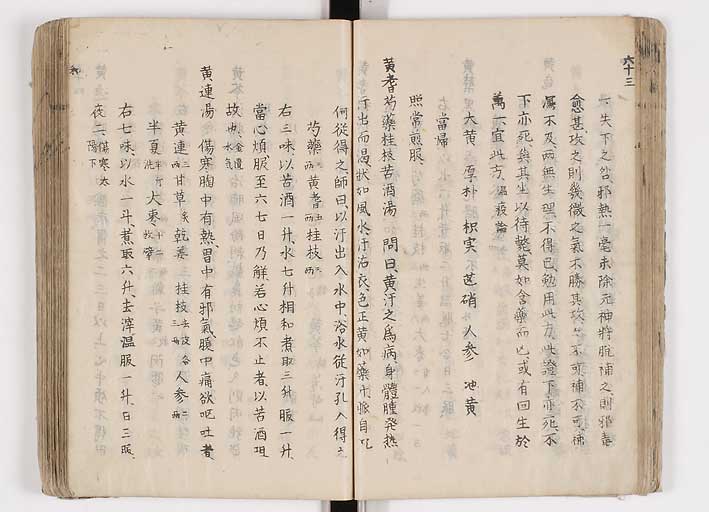 六十三
失下之咎邪熱一毫未除元神將脫補之則邪毒
愈甚攻之則幾微之氣不勝其攻
不可補不可
屬不及兩無生理不得已勉用此方此證下亦死不
下亦死與其坐以待斃莫如含藥而亡或有回生於
萬一宜此方 温疫論
大黄 厚朴 枳実 芒硝 人参 地黄
當帰
照常煎服
黄耆芍藥桂枝苦酒湯 問曰黄汗之為病身體腫発熱
汗出而渇状如風水汗沾衣色正黄如蘗汁脉自沈
何從得之師曰以汗出入水中浴水従汗孔入得之
芍藥三両 黄耆五両 桂枝三両
右三味以苦酒一升水七升相和煮取三升服一升
當心煩服至六七日乃解若心煩不止者以苦酒阻
故也 金匱水気
黄連湯 傷寒胸中有熱胃中有邪氣腹中痛欲呕吐者
黄連三両 甘草炙 乾姜 桂枝去皮各三両 人参二両
半夏半升洗 大棗十二枚擘
右七味以水一斗煮取六升去滓温服一升日三服
夜二 傷寒太陽下